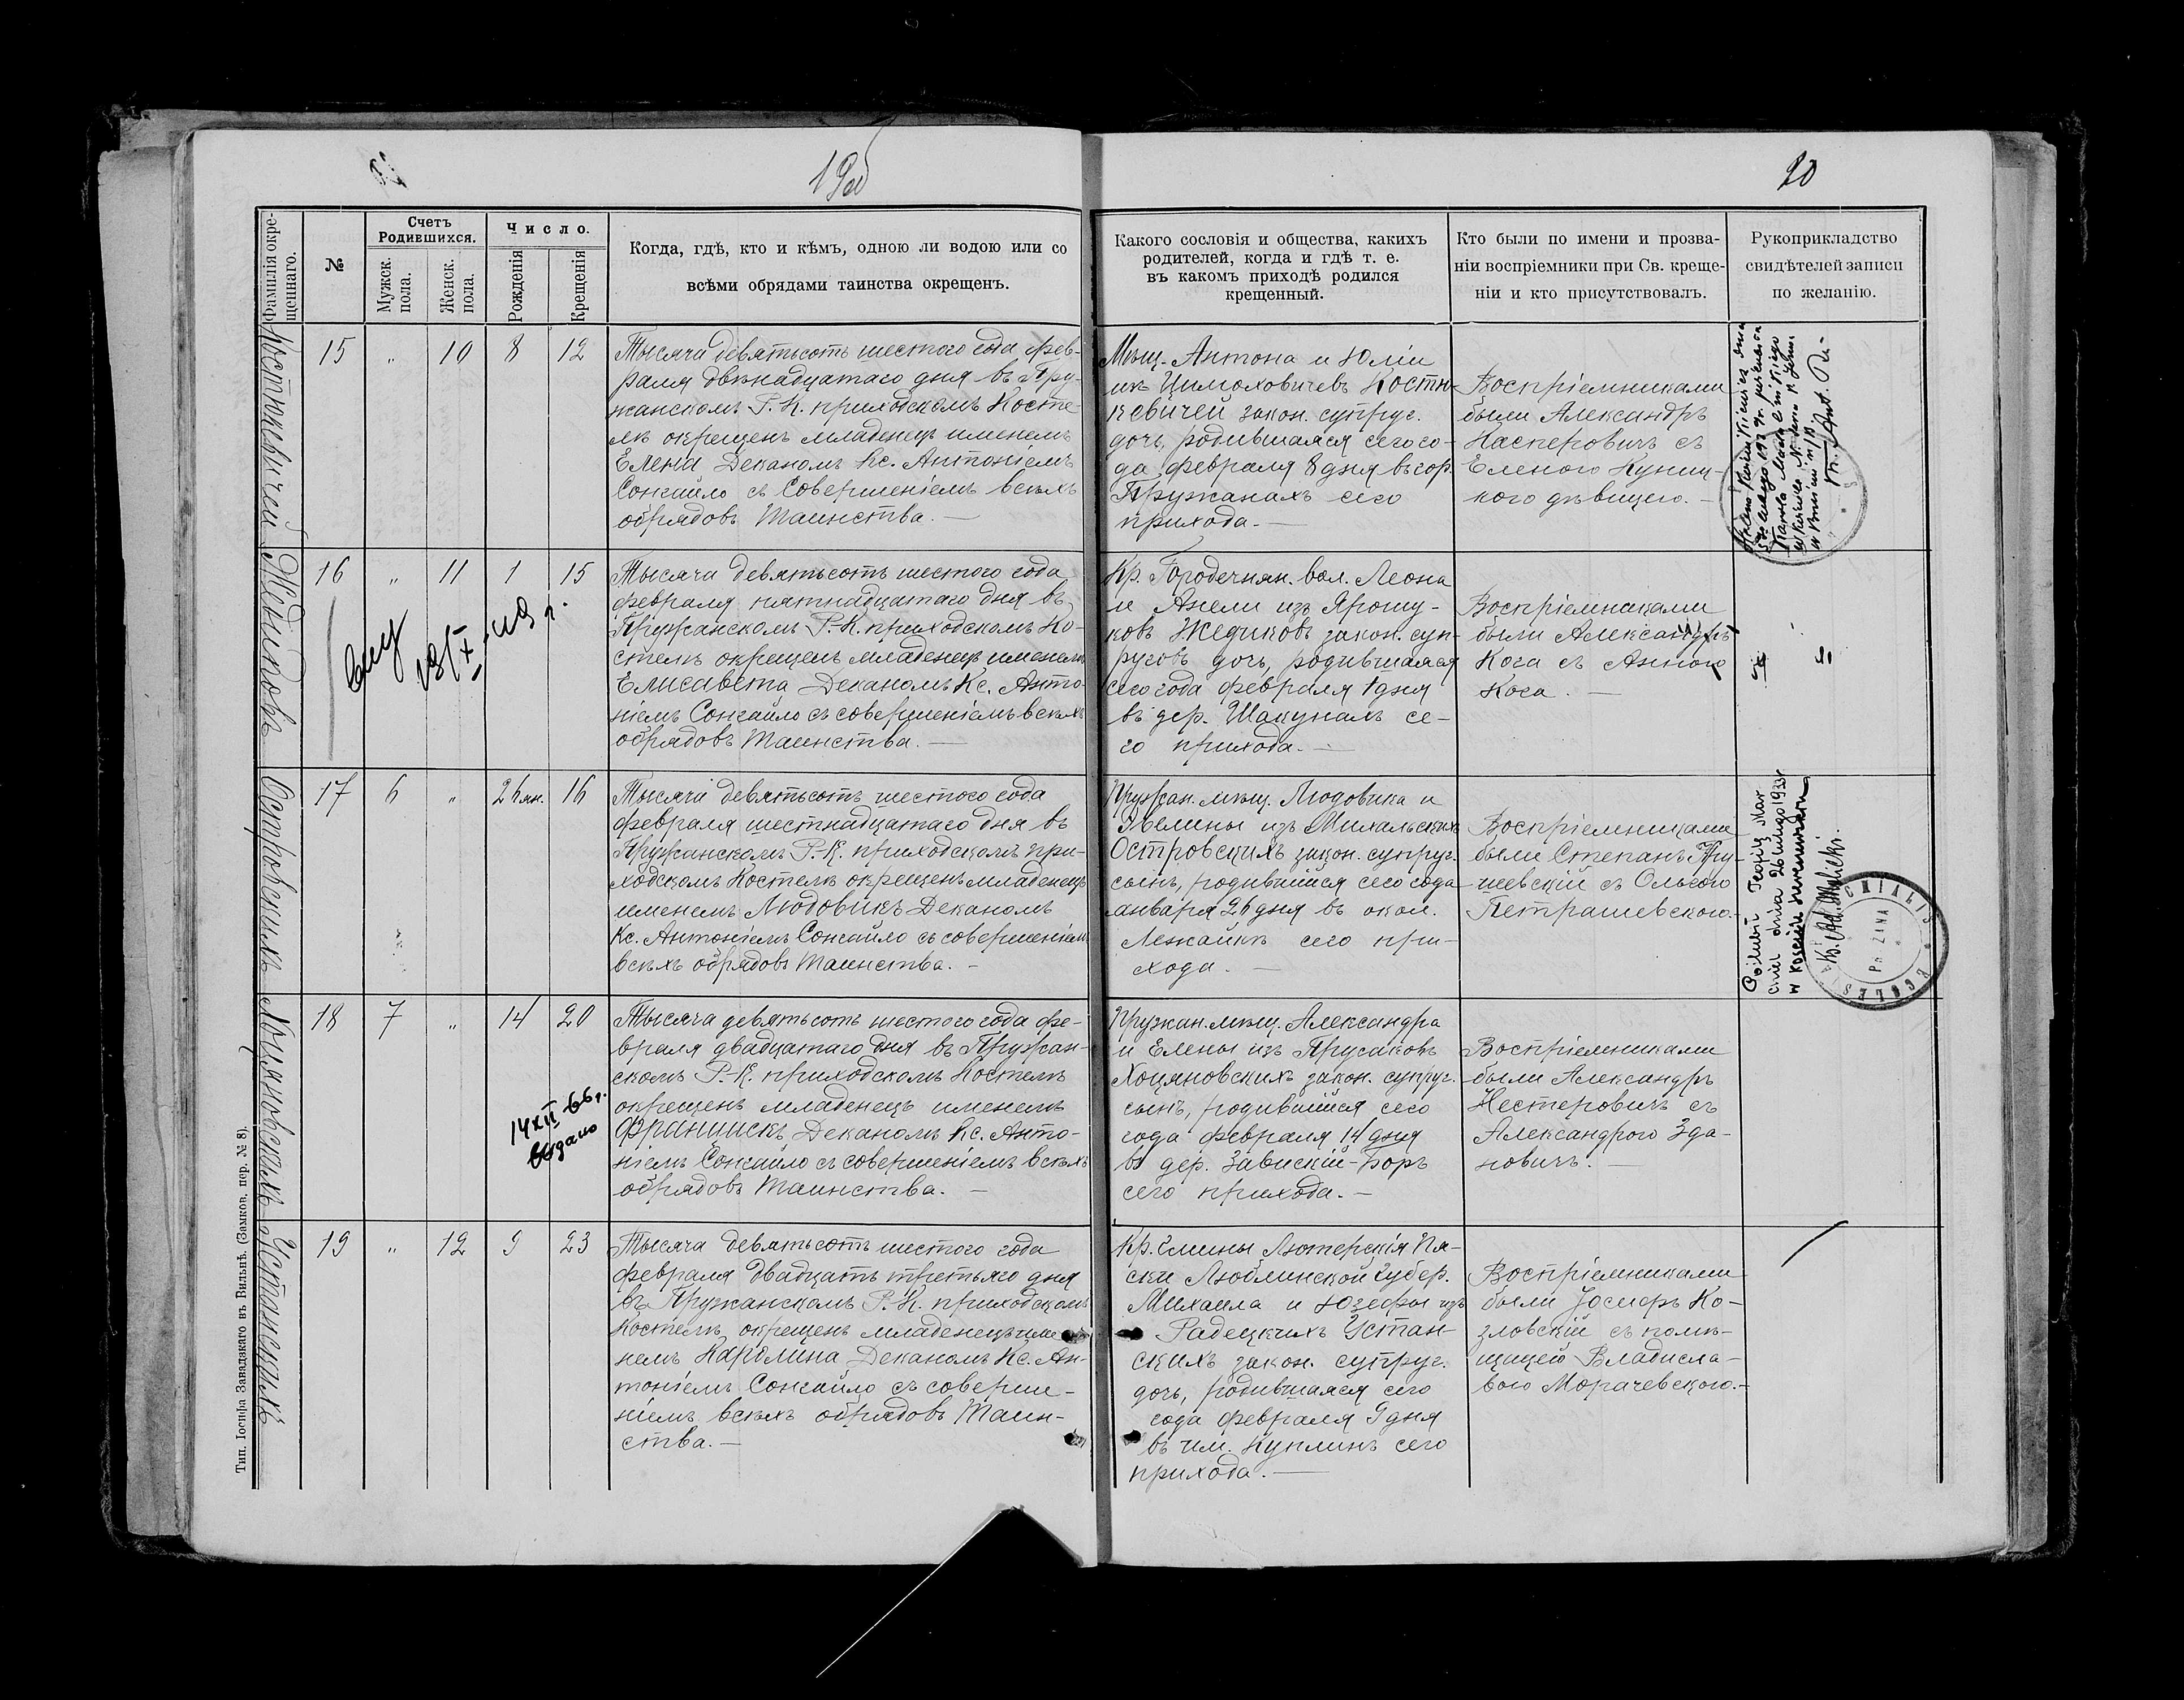 19об
20
Фамилія окре-
щеннаго.
№
Счетъ
Родившихся.
Мужск.
пола.
Женск.
пола.
Число.
Рожденія
Крещенія
Когда, гдѣ, кто и кѣмъ, одною ли водою или со
всѣми обрядами таинства окрещенъ.
Какого сословія и общества, какихъ
родителей, когда и гдѣ т. е.
въ какомъ приходѣ родился
крещенный.
Кто были по имени и прозва-
ніи воспріемники при Св. креще-
ніи и кто присутствовалъ.
Рукоприкладство
свидѣтелей записи
по желанію.
Костюкевичей
15 „ 10 8 12
Тысяча девятьсотъ шестого года фев-
раля двѣнадцатаго дня въ Пру-
жанскомъ Р. К. приходскомъ Косте-
лѣ окрещенъ младенецъ именемъ
Елена Деканомъ Кс. Антоніемъ
Сонгайло съ совершеніемъ всѣхъ
обрядовъ Таинства. —
Мѣщ. Антона и Юліи
изъ Цимоховичевъ Костю-
кевичей закон. супруг.
дочь, родившаяся сего го-
да февраля 8 дня въ гор.
Пружанахъ сего
прихода. —
Воспріемниками
были Александръ
Касперовичъ съ
Еленою Куниц-
кого дѣвицею. —
Жедиковъ
16 „ 11 1 15
Тысяча девятьсотъ шестого года
февраля пятнадцатаго дня въ
Пружанскомъ Р.-К. приходскомъ Ко-
стелѣ окрещенъ младенецъ именемъ
Елисавета Деканомъ Кс. Анто-
ніемъ Сонгайло съ совершеніемъ всѣхъ
обрядовъ Таинства. —
Кр. Городечнян. вол. Леона
и Анели изъ Ярошу-
ковъ Жедиковъ закон. суп-
руговъ дочь, родившаяся
сего года февраля 1 дня
въ дер. Шакунахъ се-
го прихода. —
Воспріемниками
были Александръ
Кога съ Анною
Кога. —
Островскихъ
17 6 „ 26 ян. 16
Тысяча девятьсотъ шестого года
февраля шестнадцатаго дня въ
Пружанскомъ Р.-К. приходскомъ при-
ходскомъ Костелѣ окрещенъ младенецъ
именемъ Людовикъ Деканомъ
Кс. Антоніемъ Сонгайло съ совершеніемъ
всѣхъ обрядовъ Таинства. —
Пружан. мѣщ. Людовика и
Эвелины изъ Михальскихъ
Островскихъ закон. супруг.
сынъ, родившійся сего года
января 26 дня въ окол.
Лежайкѣ сего при-
хода. —
Воспріемниками
были Степанъ
съ Ольгою
Петрашевскою.
Хоцяновскихъ
18 7 „ 14 20
Тысяча девятьсотъ шестого года фе-
враля двадцатаго дня въ Пружан-
скомъ Р.-К. приходскомъ Костелѣ
окрещенъ младенецъ именемъ
Францискъ Деканомъ Кс. Анто-
ніемъ Сонгайло съ совершеніемъ всѣхъ
обрядовъ Таинства. —
14 XII 66 г.
видано
Пружан. мѣщ. Александра
и Елены изъ Прусаковъ
Хоцяновскихъ закон. супруг.
сынъ, родившійся сего
года февраля 14 дня
въ дер. Завискій-Боръ
сего прихода. —
Воспріемниками
были Александръ
Нестеровичъ съ
Александрою Зда-
новичъ. —
Устанскихъ
19 „ 12 9 23
Тысяча девятьсотъ шестого года
февраля двадцать третьяго дня
въ Пружанскомъ Р. К. приходскомъ
Костелѣ окрещенъ младенецъ име-
немъ Каролина Деканомъ Кс. Ан-
тоніемъ Сонгайло съ соверше-
ніемъ всѣхъ обрядовъ Таин-
ства. —
Кр. гмины Лютерскія Пя-
ски Люблинской губер.
Михаила и Юзефы изъ
Радецкихъ Устан-
скихъ закон. супруг.
дочь, родившаяся сего
года февраля 9 дня
въ им. Куплинъ сего
прихода. —
Воспріемниками
были Іосифъ Ко-
зловскій съ помѣ-
щицей Владисла-
вою Морачевскою. —
Тип. Іосифа Завадзкаго въ Вильнѣ. (Замков. пер. № 8).